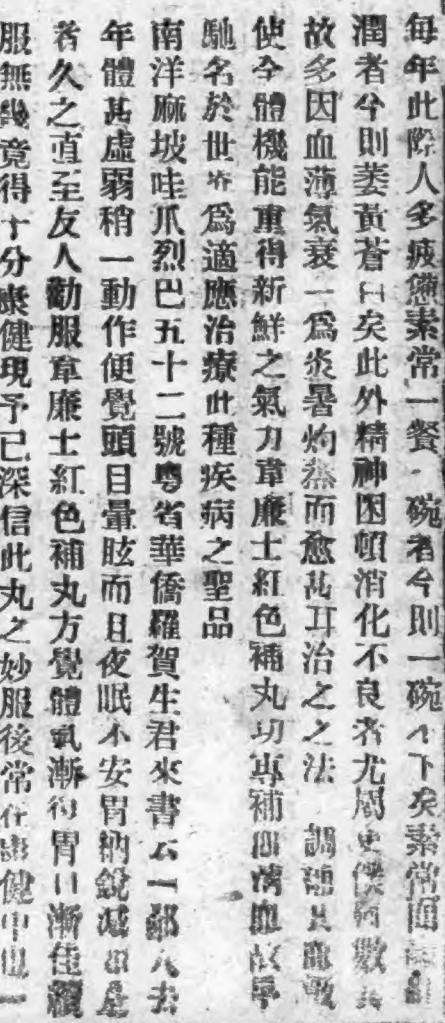 每年此際人多疲憊素常一餐 碗者今則一碗 下矣素常面
潤者今則萎黃蒼 矣此外精神困頓消化不良者尤屬 數
故多因血薄氣衰一爲炎暑灼蒸而愈甚耳治之之法 調 其
使全體機能重得新鮮之氣力韋廉士紅色補丸功專補 血故
馳名於世 爲適應治療此種疾病之聖品
南洋麻坡哇爪烈巴五十二號粵省華僑羅賀生君來書云 去
年體甚虛弱稍一動作便覺頭目暈眩而且夜眠不安胃納銳減
者久之直至友人勸服韋廉士紅色補丸方覺體氣漸 胃口漸佳續
服無幾竟得十分康健現予已深信此丸之妙服後常在康健中也